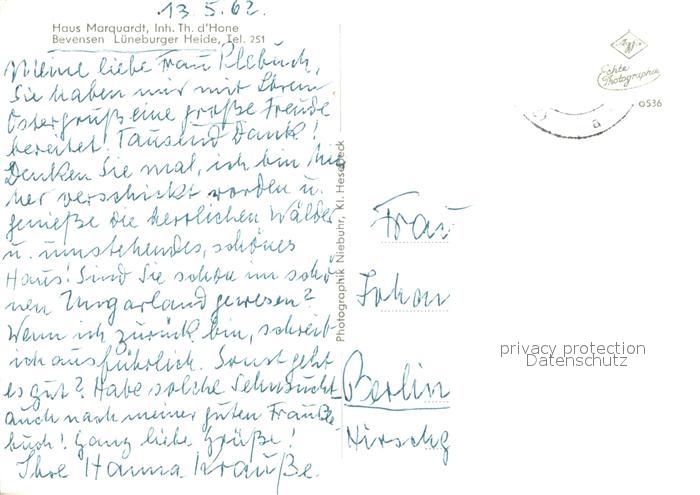 13.5.62.
Haus Marquardt, Inh. Th. d'Hone
Bevensen Lüneburger Heide, Tel. 251
Meine liebe Frau Plebuch,
Sie haben mir mit Ihrem
Ostergruß eine große Freude
bereitet! Tausend Dank!
Denken Sie mal, ich bin hie
her verschickt worden u.
genieße die herrlichen Wälder
u. umstehendes, schönes
Haus! Sind Sie schon im schö
nen Ungarland gewesen?
Wenn ich zurück bin, schreib
ich ausführlich. Sonst geht
es gut? Habe solche Sehnsucht
auch nach meiner guten Frau Ple-
buch! Ganz liebe Grüße!
Ihre Hanna Krauße.
Photographik Niebuhr, Kl. Hesebeck
Echte
Photographie
0536
a
Frau
Johan
Berlin
Hirschg
privacy protection
Datenschutz